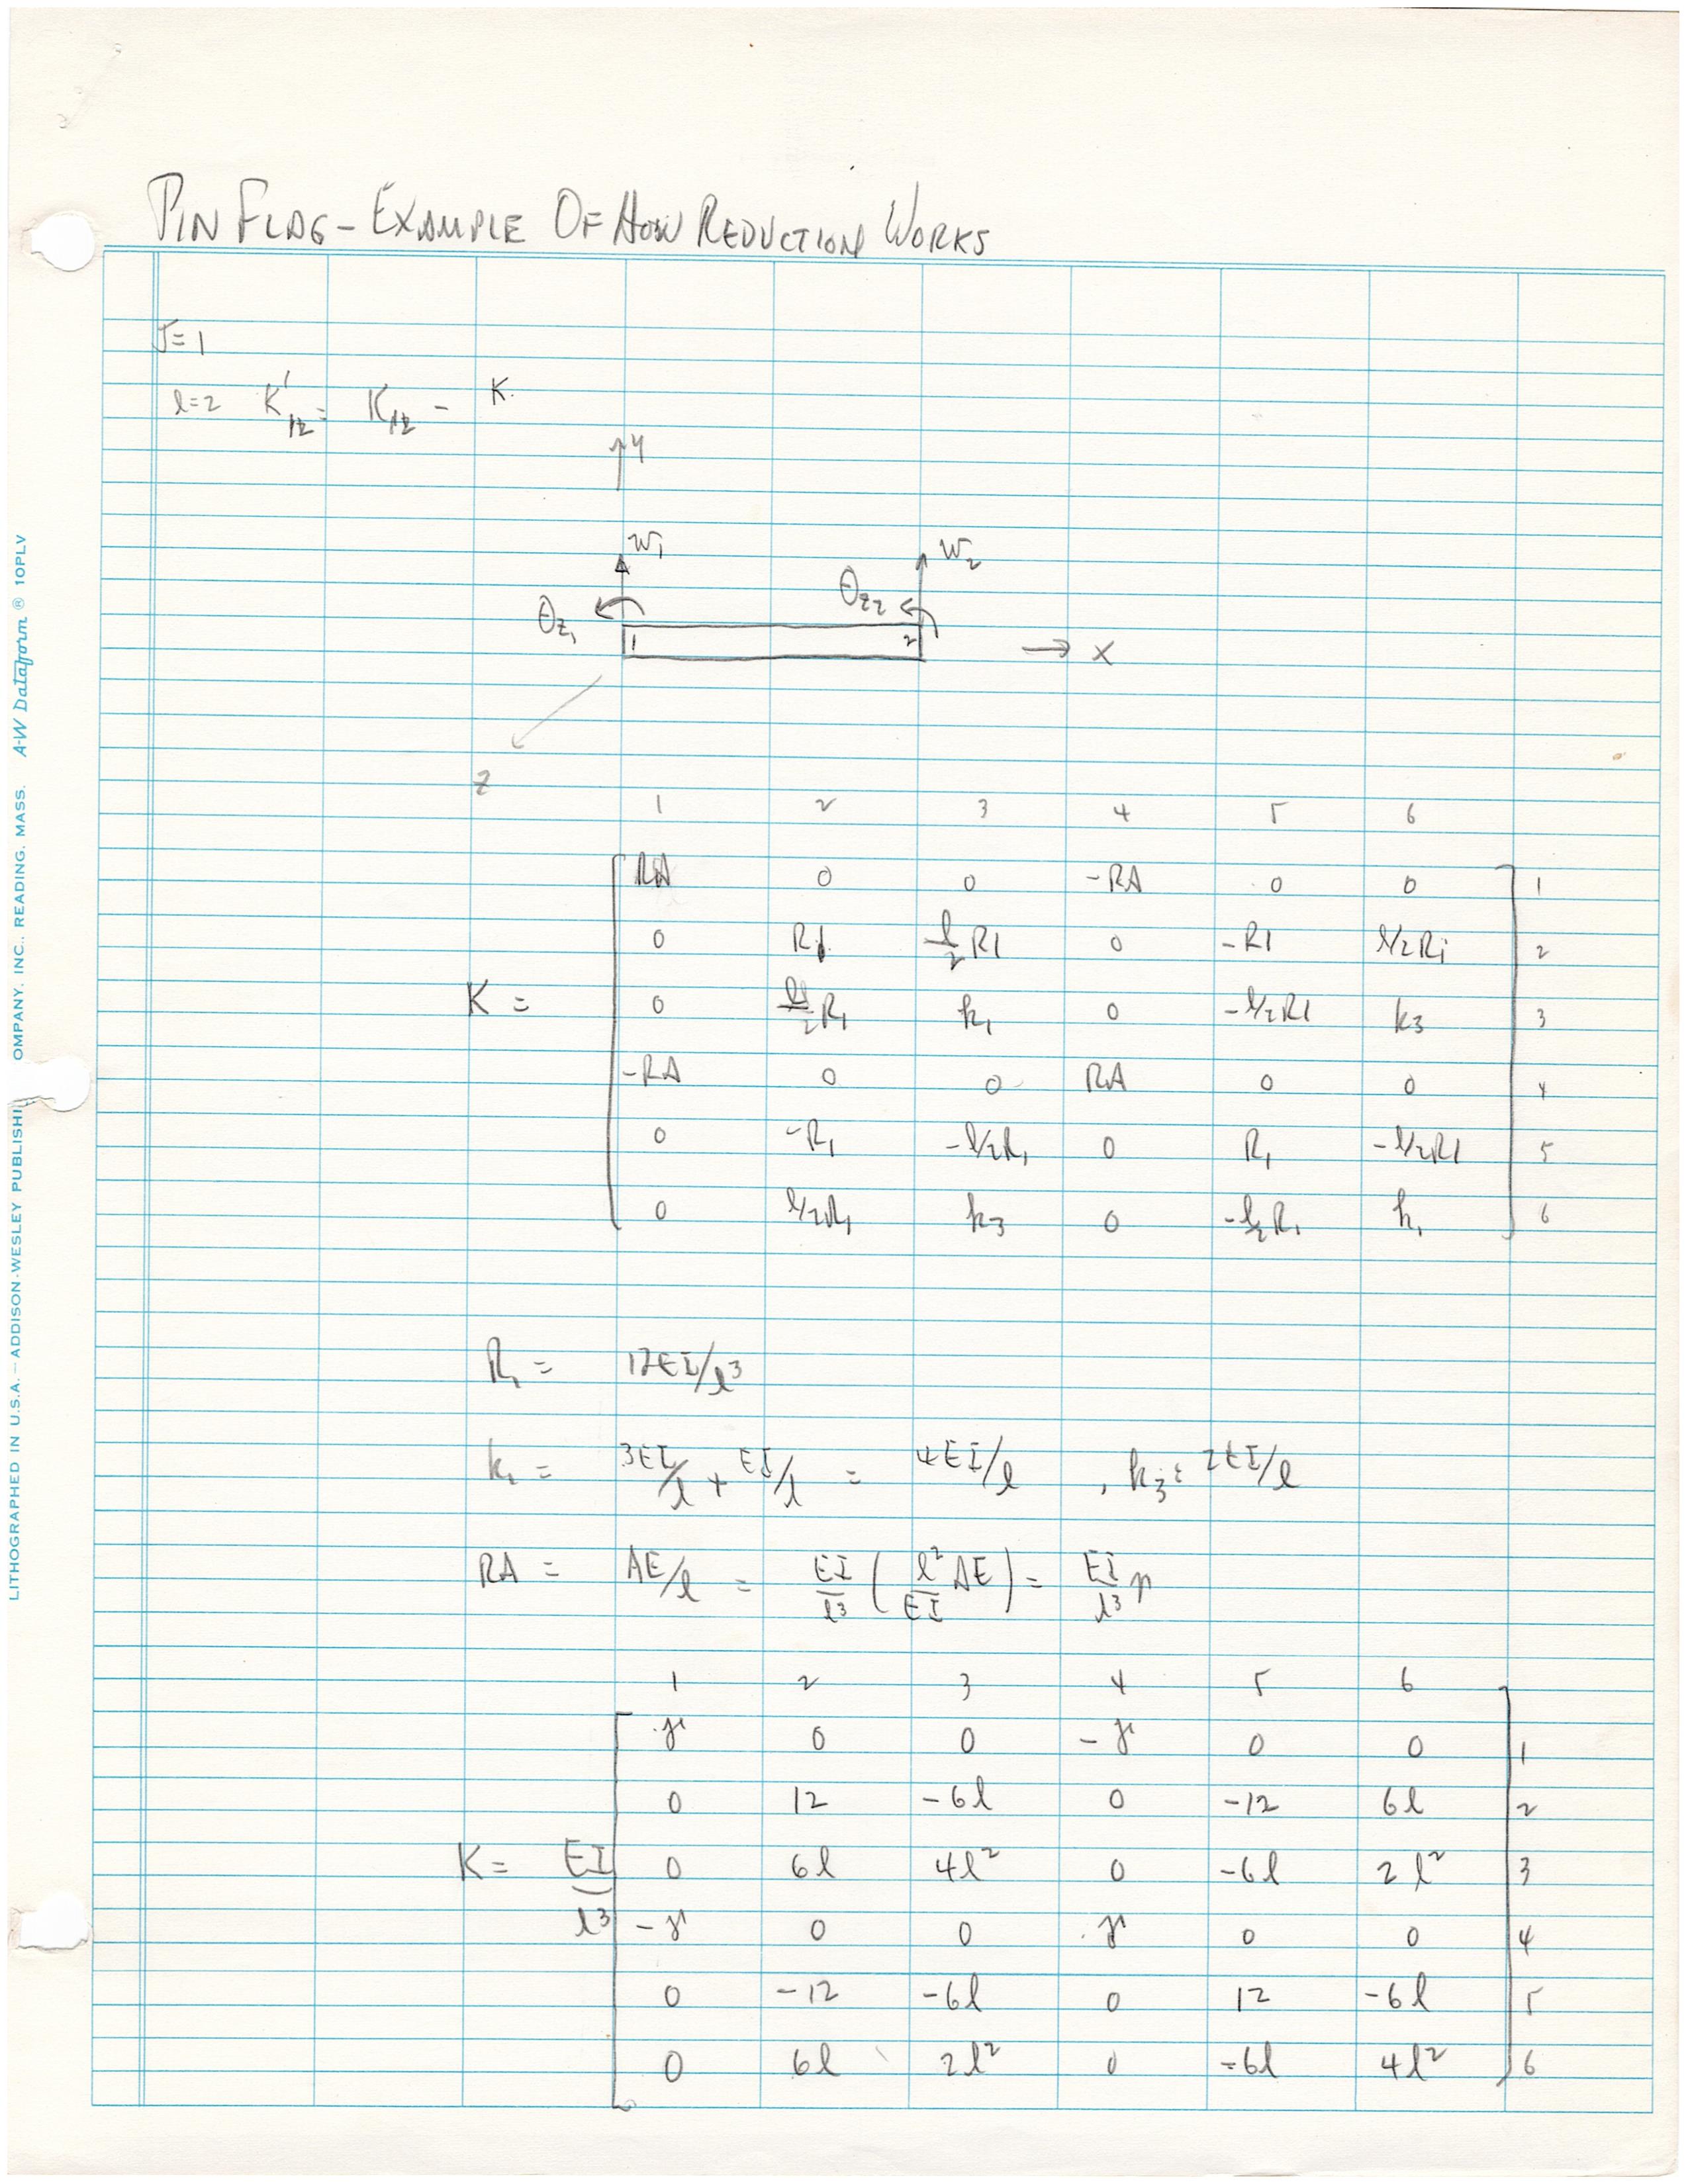 PIN FLAG - EXAMPLE OF HOW REDUCTION WORKS
J=1
l=2 K'12 = K12 - K
↑ y
w1 w2
θz1 θz2
1 2 → x
z
1 2 3 4 5 6
RA 0 0 -RA 0 0 1
0 R1 l/2 R1 0 -R1 l/2 R1 2
K = 0 l/2 R1 k1 0 -l/2 R1 k3 3
-RA 0 0 RA 0 0 4
0 -R1 -l/2 R1 0 R1 -l/2 R1 5
0 l/2 R1 k3 0 -l/2 R1 k1 6
R1 = 12EI/l³
k1 = 3EI/l + EI/l = 4EI/l , k3 = 2EI/l
RA = AE/l = EI/l³ ( l²/EI AE ) = EI/l³ γ
1 2 3 4 5 6
γ 0 0 -γ 0 0 1
0 12 -6l 0 -12 6l 2
K = EI/l³ 0 6l 4l² 0 -6l 2l² 3
-γ 0 0 γ 0 0 4
0 -12 -6l 0 12 -6l 5
0 6l 2l² 0 -6l 4l² 6
LITHOGRAPHED IN U.S.A. — ADDISON-WESLEY PUBLISHI OMPANY, INC., READING, MASS. A-W Dataform ® 10PLV